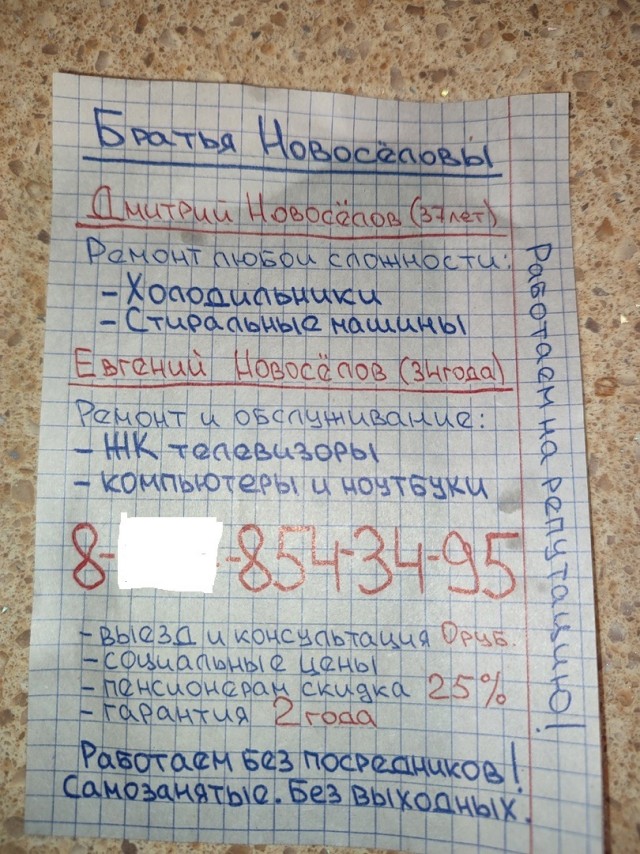 Братья Новосёловы
Дмитрий Новосёлов (37лет)
Ремонт любой сложности:
- Холодильники
- Стиральные машины
Евгений Новосёлов (34года)
Ремонт и обслуживание:
- ЖК телевизоры
- компьютеры и ноутбуки
8- -854-34-95
- выезд и консультация 0руб.
- социальные цены
- пенсионерам скидка 25%
- гарантия 2 года
Работаем без посредников!
Самозанятые. Без выходных.
Работаем на репутацию!